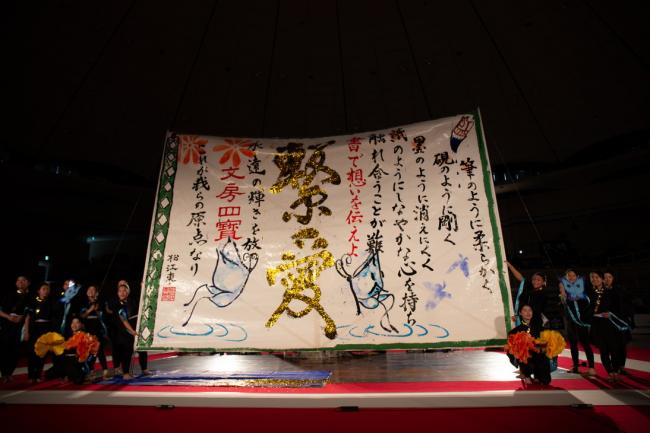 筆のように柔らかく
硯のように剛く
墨のように消えにくく
紙のようにしなやかな心を持ち
触れ合うことが難しい今
書で想いを伝えよ
繋愛
永遠の輝きを放つ
文房四寶
これが我らの原点なり
松江東